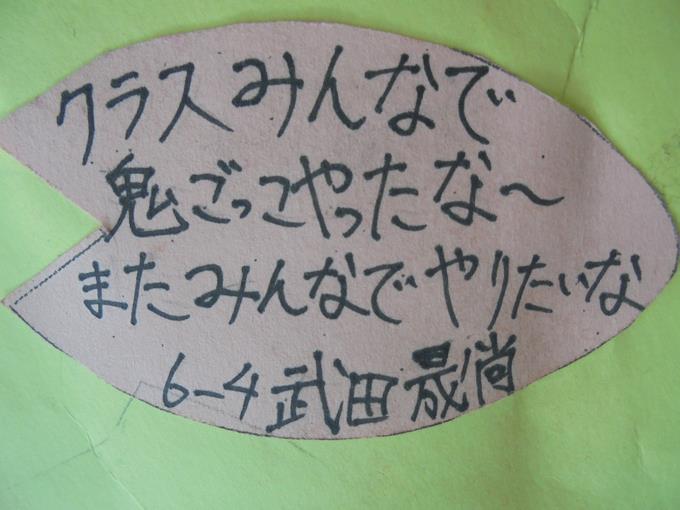 クラスみんなで
鬼ごっこやったな〜
またみんなでやりたいな
6-4 武田晟尚